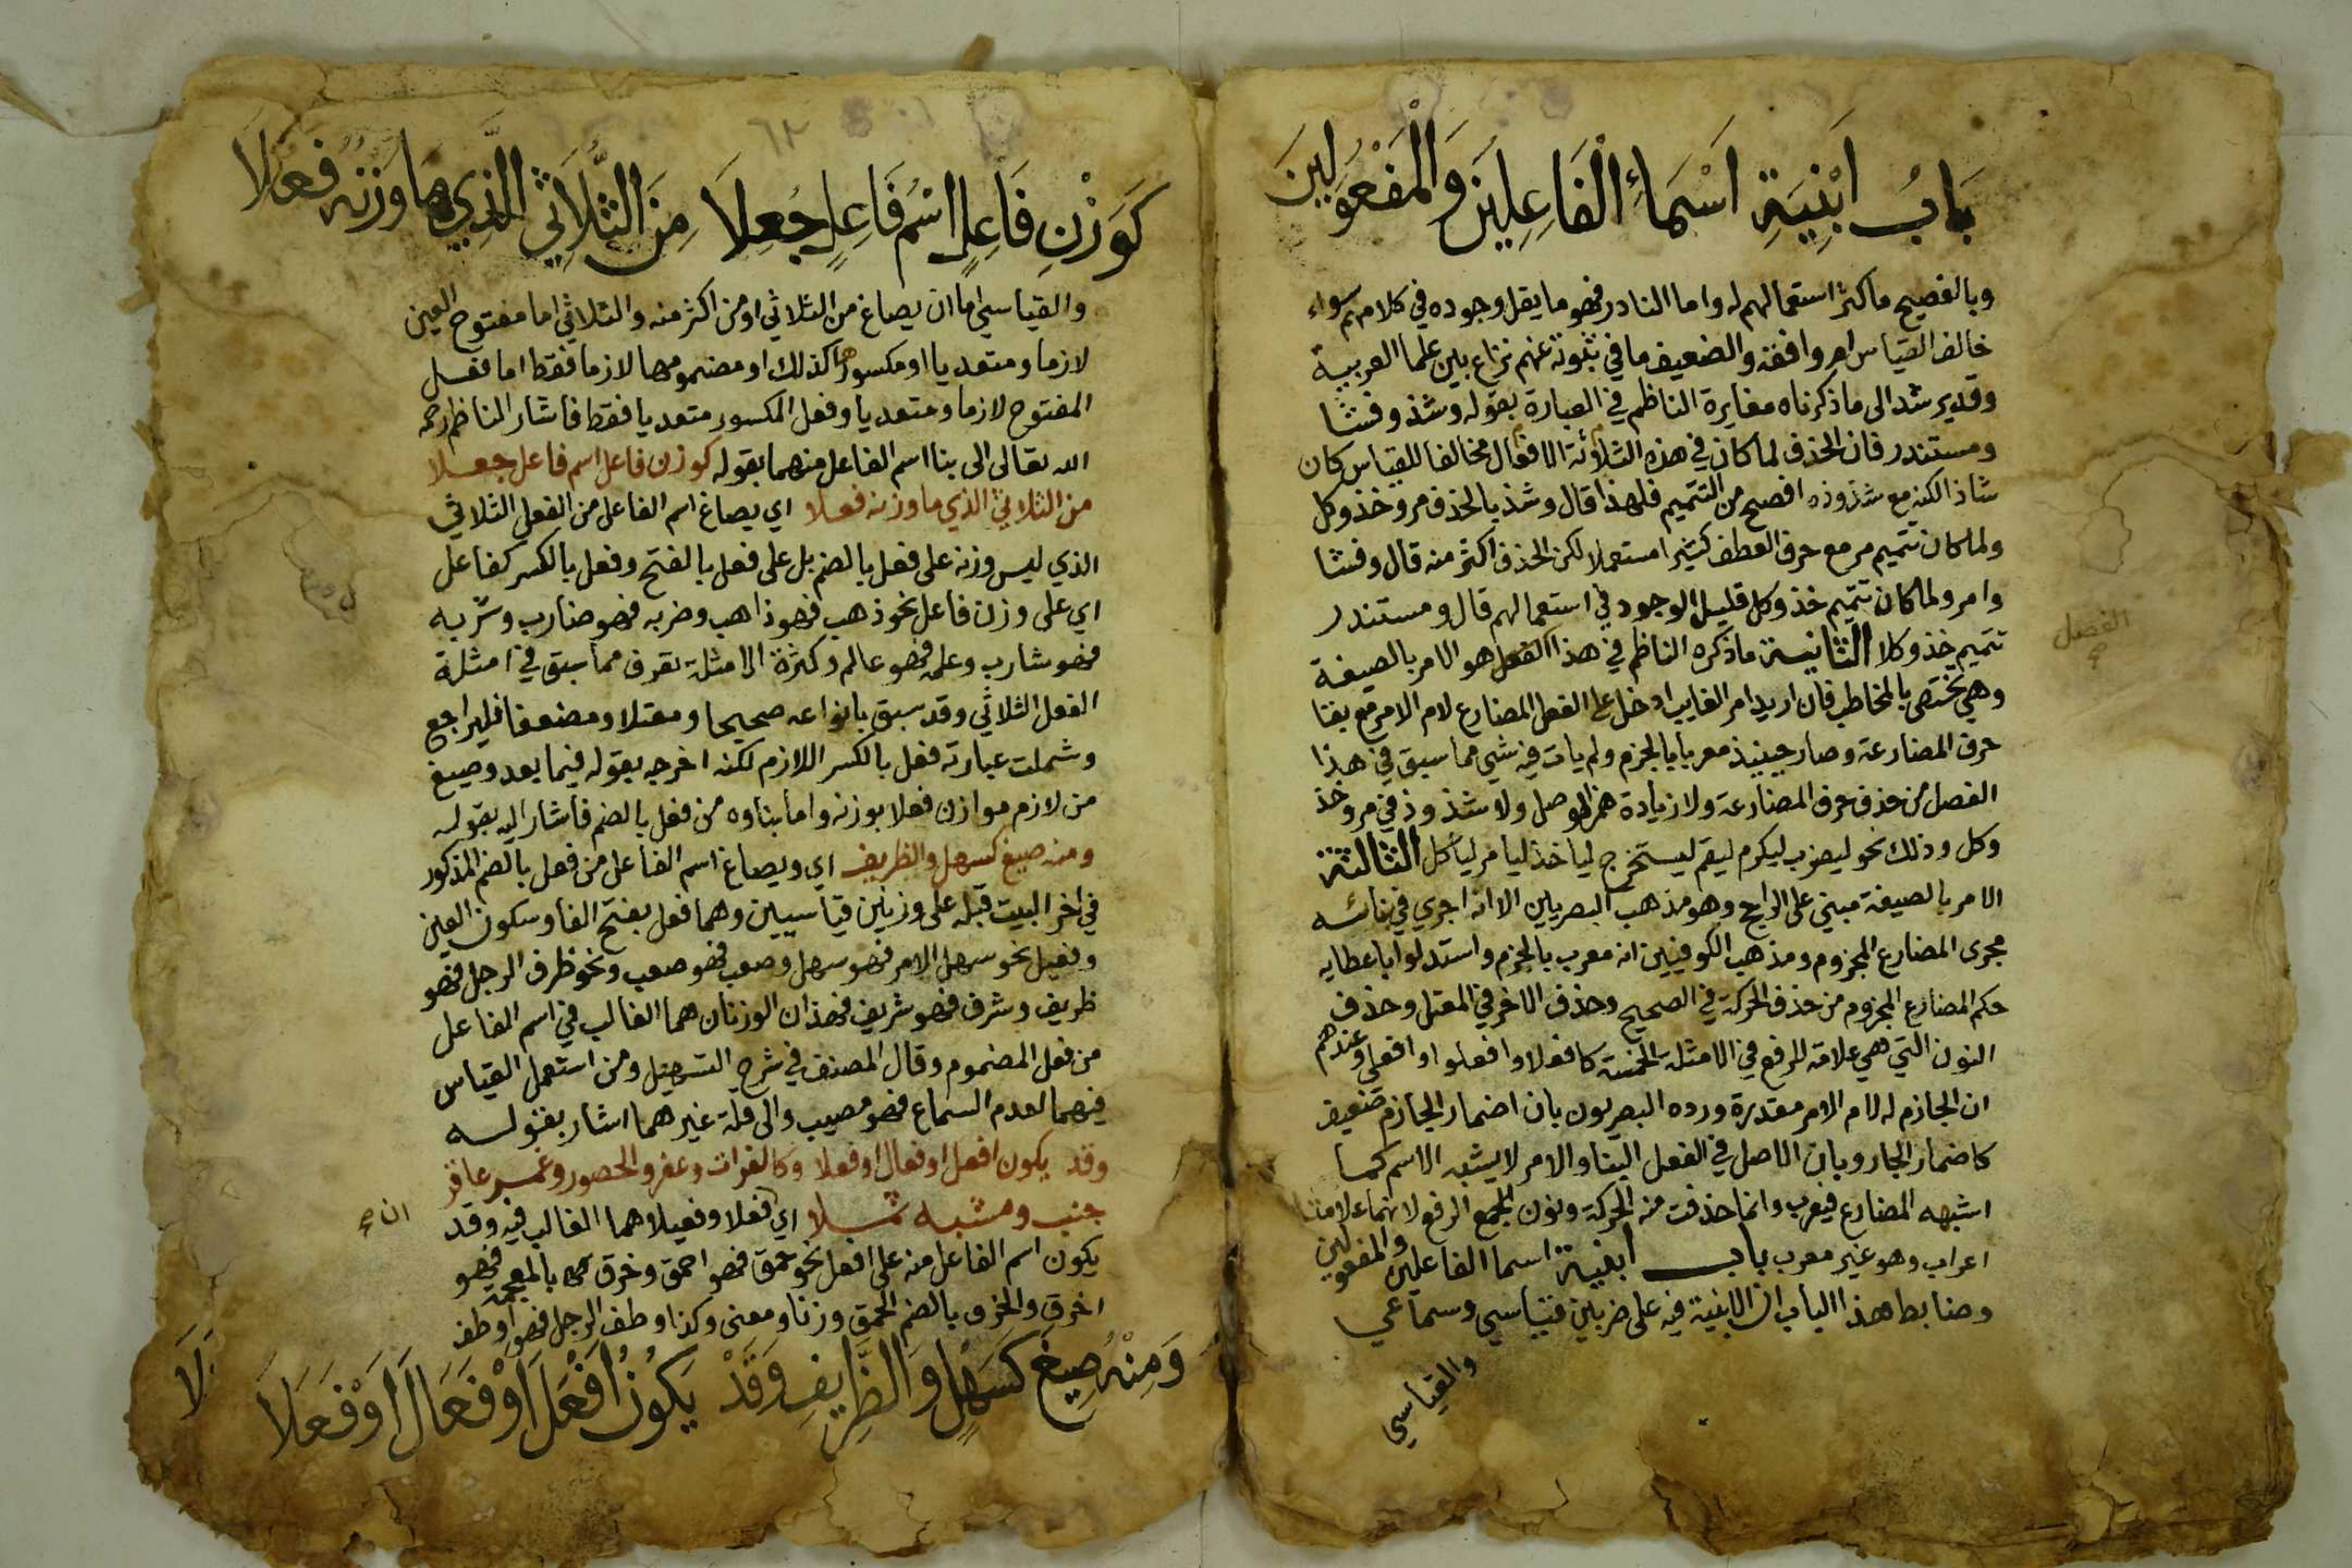 بَابُ اَبْنِيَةِ اَسْمَاءِ الْفَاعِلِينَ وَالْمَفْعُولِينَ
وبالفصيح ماكثر استعمالهم له واما النادر فهو ما يقل وجوده في كلامهم سواء
خالف القياس ام وافقه والضعيف ما في ثبوته عنهم نزاع بين علما العربية
وقد يرشد الى ما ذكرناه مغايرة الناظم في العبارة بقوله وشذ وفشا
ومستندر فان الحذف لما كان في هذه الثلاثة الافعال مخالفا للقياس كان
شاذا لكنه مع شذوذه افصح من التتميم فلهذا قال وشذ بالحذف مر وخذ وكل
ولما كان تتميم مر مع حرف العطف كثيرا مستعملا لكن الحذف اكثر منه قال وفشا
وامر ولما كان تتميم خذ وكل قليل الوجود في استعمالهم قال ومستندر
تتميم خذ وكلا الثانية ما ذكره الناظم في هذا الفعل هو الامر بالصيغة
الفصل
وهي تختص بالمخاطب فان اريد امر الغايب ادخل على الفعل المضارع لام الامر مع بقا
حرف المضارعة وصار حينيذ معربا بالجزم ولم يات فيه شي مما سبق في هذا
الفصل من حذف حرف المضارعة ولا زيادة همز الوصل ولا شذوذ في مر وخذ
وكل وذلك نحو ليضرب ليكرم ليقم ليستخرج لياخذ ليامر لياكل الثالثة
الامر بالصيغة مبني على الراجح وهو مذهب البصريين الا انه اجري في بنائه
مجرى المضارع المجزوم ومذهب الكوفيين انه معرب بالجزم واستدلوا باعطايه
حكم المضارع المجزوم من حذف الحركة في الصحيح وحذف الاخر في المعتل وحذف
النون التي هي علامة للرفع في الامثلة الخمسة كافعلا وافعلوا وافعلي وعندهم
ان الجازم له لام الامر مقدرة ورده البصريون بان اضمار الجازم ضعيف
كاضمار الجار وبان الاصل في الفعل البنا والامر لا يشبه الاسم كما
اشبهه المضارع فيعرب وانما حذفت منه الحركة ونون الجمع الرفع لانهما علامتا
اعراب وهو غير معرب باب ابنية اسما الفاعلين والمفعولين
وضابط هذا الباب ان الابنية فيه على ضربين قياسي وسماعي
والقياسي
٦٢
كَوَزْنِ فَاعِلٍ اسْمُ فَاعِلٍ جُعِلَا مِنَ الثُّلَاثِي الَّذِي مَا وَزْنُهُ فَعُلَا
والقياسي اما ان يصاغ من الثلاثي او من اكثر منه والثلاثي اما مفتوح العين
لازما ومتعديا او مكسورها كذلك او مضمومها لازما فقط اما فعل
المفتوح لازما ومتعديا وفعل المكسور متعديا فقط فاشار الناظم رحمه
الله تعالى الى بنا اسم الفاعل منهما بقوله كوزن فاعل اسم فاعل جعلا
من الثلاثي الذي ما وزنه فعلا اي يصاغ اسم الفاعل من الفعل الثلاثي
الذي ليس وزنه على فعل بالضم بل على فعل بالفتح وفعل بالكسر كفاعل
اي على وزن فاعل نحو ذهب فهو ذاهب وضربه فهو ضارب وشربه
فهو شارب وعلمه فهو عالم وكثرة الامثلة تعرف مما سبق في امثلة
الفعل الثلاثي وقد سبق بانواعه صحيحا ومعتلا ومضعفا فليراجع
وشملت عبارته فعل بالكسر اللازم لكنه اخرجه بقوله فيما بعد وصيغ
من لازم موازن فعلا بوزنه واما بناوه من فعل بالضم فاشار اليه بقوله
ومنه صيغ كسهل والظريف اي ويصاغ اسم الفاعل من فعل بالضم المذكور
في اخر البيت قبله على وزنين قياسيين وهما فعل بفتح الفا وسكون العين
وفعيل نحو سهل الامر فهو سهل وصعب فهو صعب ونحو ظرف الرجل فهو
ظريف وشرف فهو شريف فهذان الوزنان هما الغالب في اسم الفاعل
من فعل المضموم وقال المصنف في شرح التسهيل ومن استعمل القياس
فيهما لعدم السماع فهو مصيب والى قلة غيرهما اشار بقوله
وقد يكون افعل او فعال او فعلا وكالفرات وعفر والحصور وغمر عاقر
جنب ومشبه ثملا اي فعلا وفعيلا هما الغالب فيه وقد
ان
يكون اسم الفاعل منه على افعل نحو حمق فهو احمق وخرق بالمعجمة فهو
اخرق والخرق بالضم الحمق وزنا ومعنى وكذا وطف الرجل فهو اوطف
وَمِنْهُ صِيغَ كَسَهْلٍ وَالظَّرِيفِ وَقَدْ يَكُونُ اَفْعَلَ اَوْ فَعَالَ اَوْ فَعَلَا